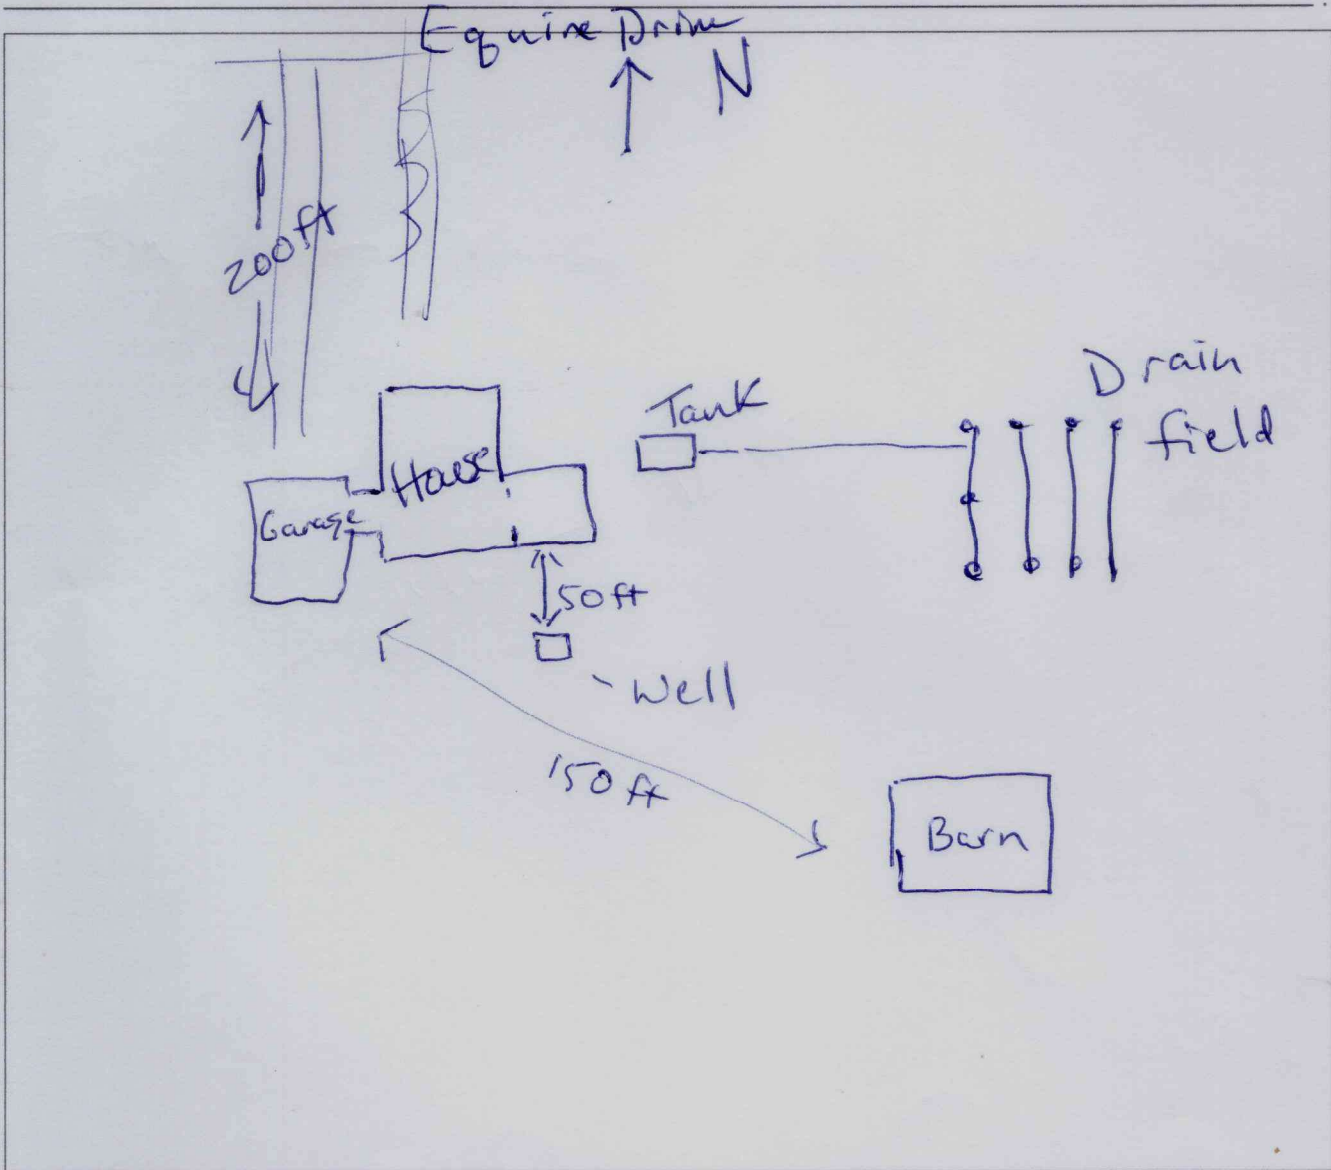 Equine Drive
N
200ft
Drain
field
Tank
House
Garage
50ft
Well
150ft
Barn